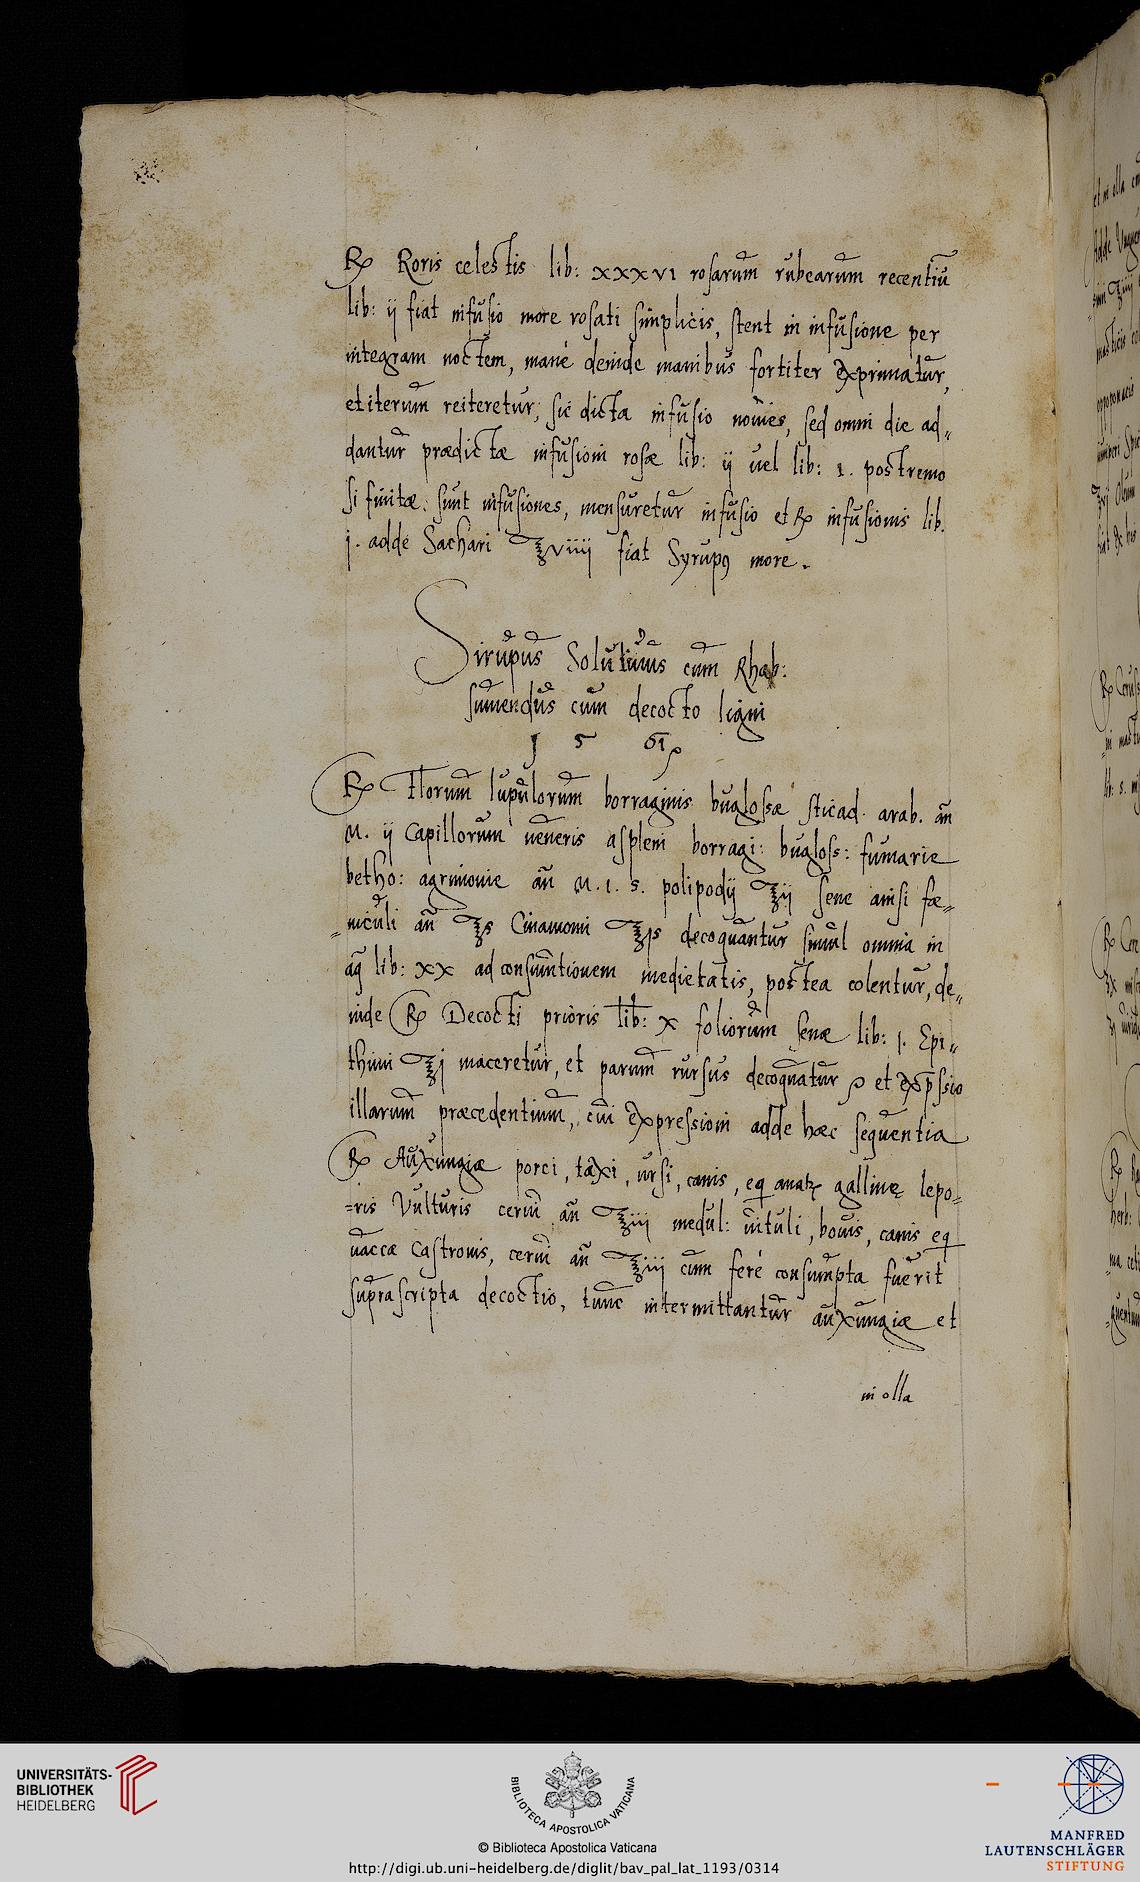 ℞ Roris celestis lib: xxxvi rosarum rubearum recentiū
lib: ij fiat infusio more rosati simplicis, stent in infusione per
integram noctem, mane deinde manibus fortiter exprimatur,
et iterum reiteretur, sic dicta infusio novies, sed omni die ad„
dantur prædictæ infusioni rosæ lib: ij vel lib: 1. postremo
si finitæ sunt infusiones, mensuretur infusio et ℞ infusionis lib.
j. adde Sachari ℥viiij fiat Syrupꝰ more.
Sirupus Solutivus cum Rhab:
sumendus cum decocto ligni
J 5 61
℞ Florum lupulorum borraginis buglossæ sticad. arab. añ
M. ij Capillorum veneris aspleni borragi: bugloss: fumarie
betho: agrimonie añ M. 1. s. polipodij ℥ij sene anisi fæ„
„niculi añ ℥s Cinamomi ℥js decoquantur simul omnia in
aq̄ lib: xx ad consumtionem medietatis, postea colentur, de„
inde ℞ Decocti prioris lib: x foliorum senæ lib: 1. Epi„
thimi ℥j maceretur, et parum rursus decoquatur et exp̄ssio
illarum præcedentium, cui expressioni adde hæc sequentia
℞ Auxungiæ porci, taxi, ursi, canis, eq anatꝫ galline lepo„
=ris Vulturis cervi añ ℥iij medul: vituli, bovis, canis eq
vaccæ Castronis, cervi añ ℥iij cum feré consumpta fuerit
suprascripta decoctio, tunc intermittantur auxungiæ et
in olla
UNIVERSITÄTS-
BIBLIOTHEK
HEIDELBERG
BIBLIOTECA APOSTOLICA VATICANA
© Biblioteca Apostolica Vaticana
http://digi.ub.uni-heidelberg.de/diglit/bav_pal_lat_1193/0314
MANFRED
LAUTENSCHLÄGER
STIFTUNG